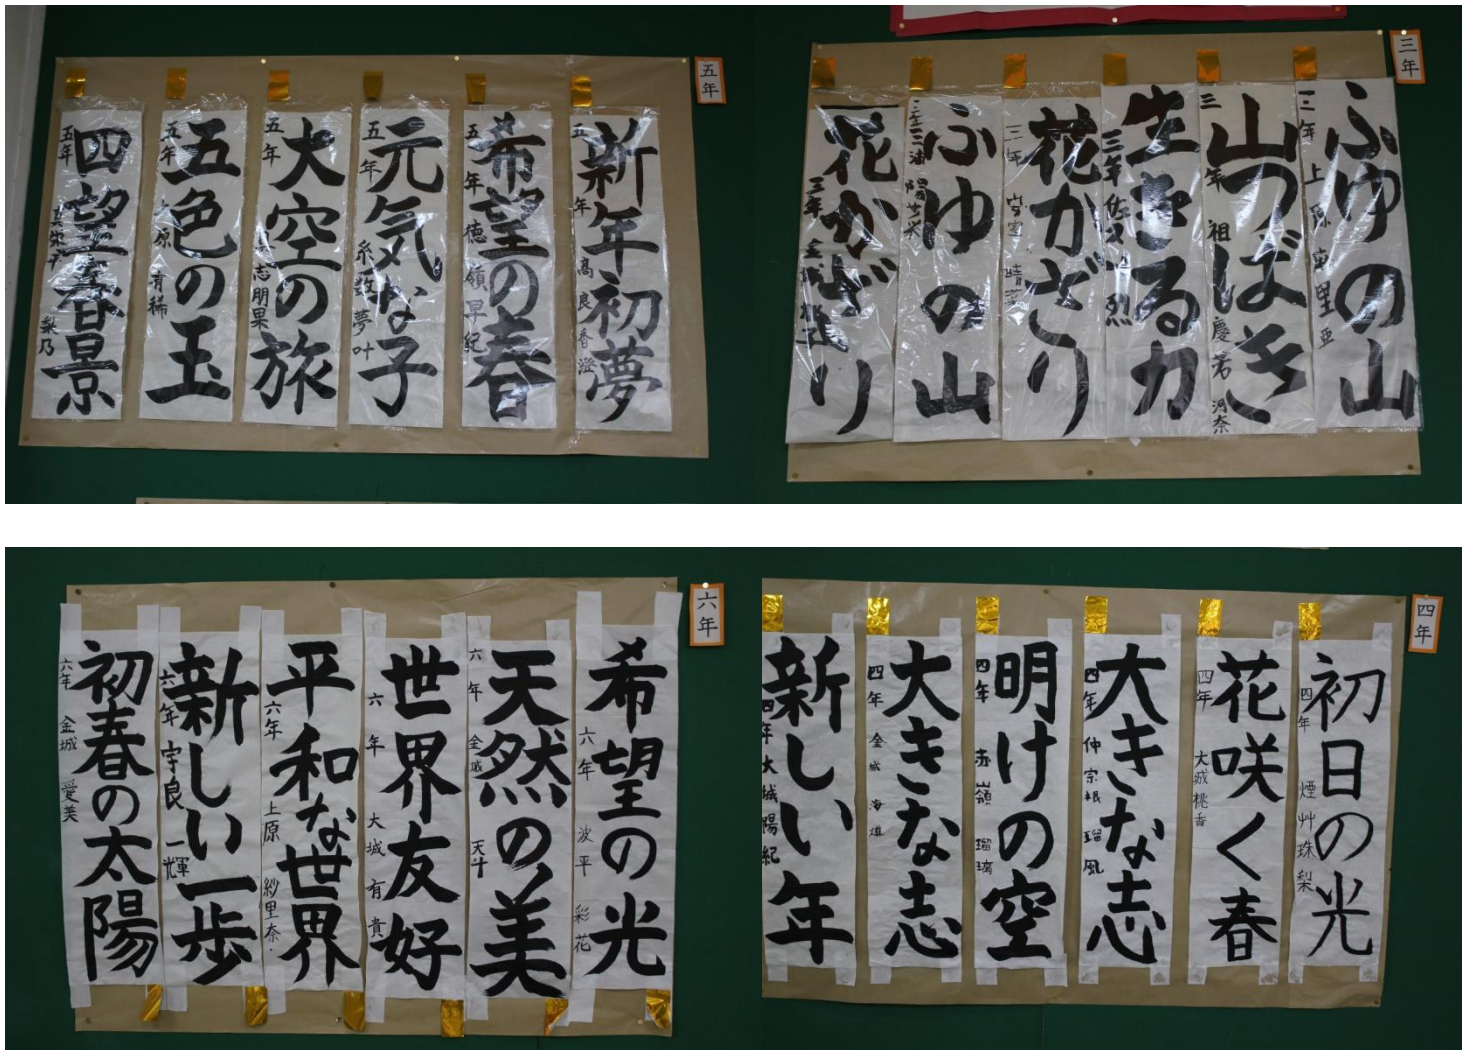 五年
新年初夢
五年 高良春澄
希望の春
五年 徳嶺早紀
元気な子
五年 糸数夢叶
大空の旅
五年 志朋果
五色の玉
五年 原 有稀
四望春景
五年 梨乃
三年
ふゆの山
三年 上原 亜
山つばき
三年 祖慶 河奈
生きる力
三年 佐久川 烈
花かざり
三年 宮里 晴
ふゆの山
花かざり
三年 金城
六年
希望の光
六年 波平 彩花
天然の美
六年 金城 天斗
世界友好
六年 大城 有貴
平和な世界
六年 上原 紗里奈
新しい一歩
六年 宇良 一輝
初春の太陽
六年 金城 愛美
四年
初日の光
四年 煙艸珠梨
花咲く春
四年 大城桃香
大きな志
四年 仲宗根 瑠風
明けの空
四年 赤嶺 瑠璃
大きな志
四年 金城 海
新しい年
四年 大城陽紀